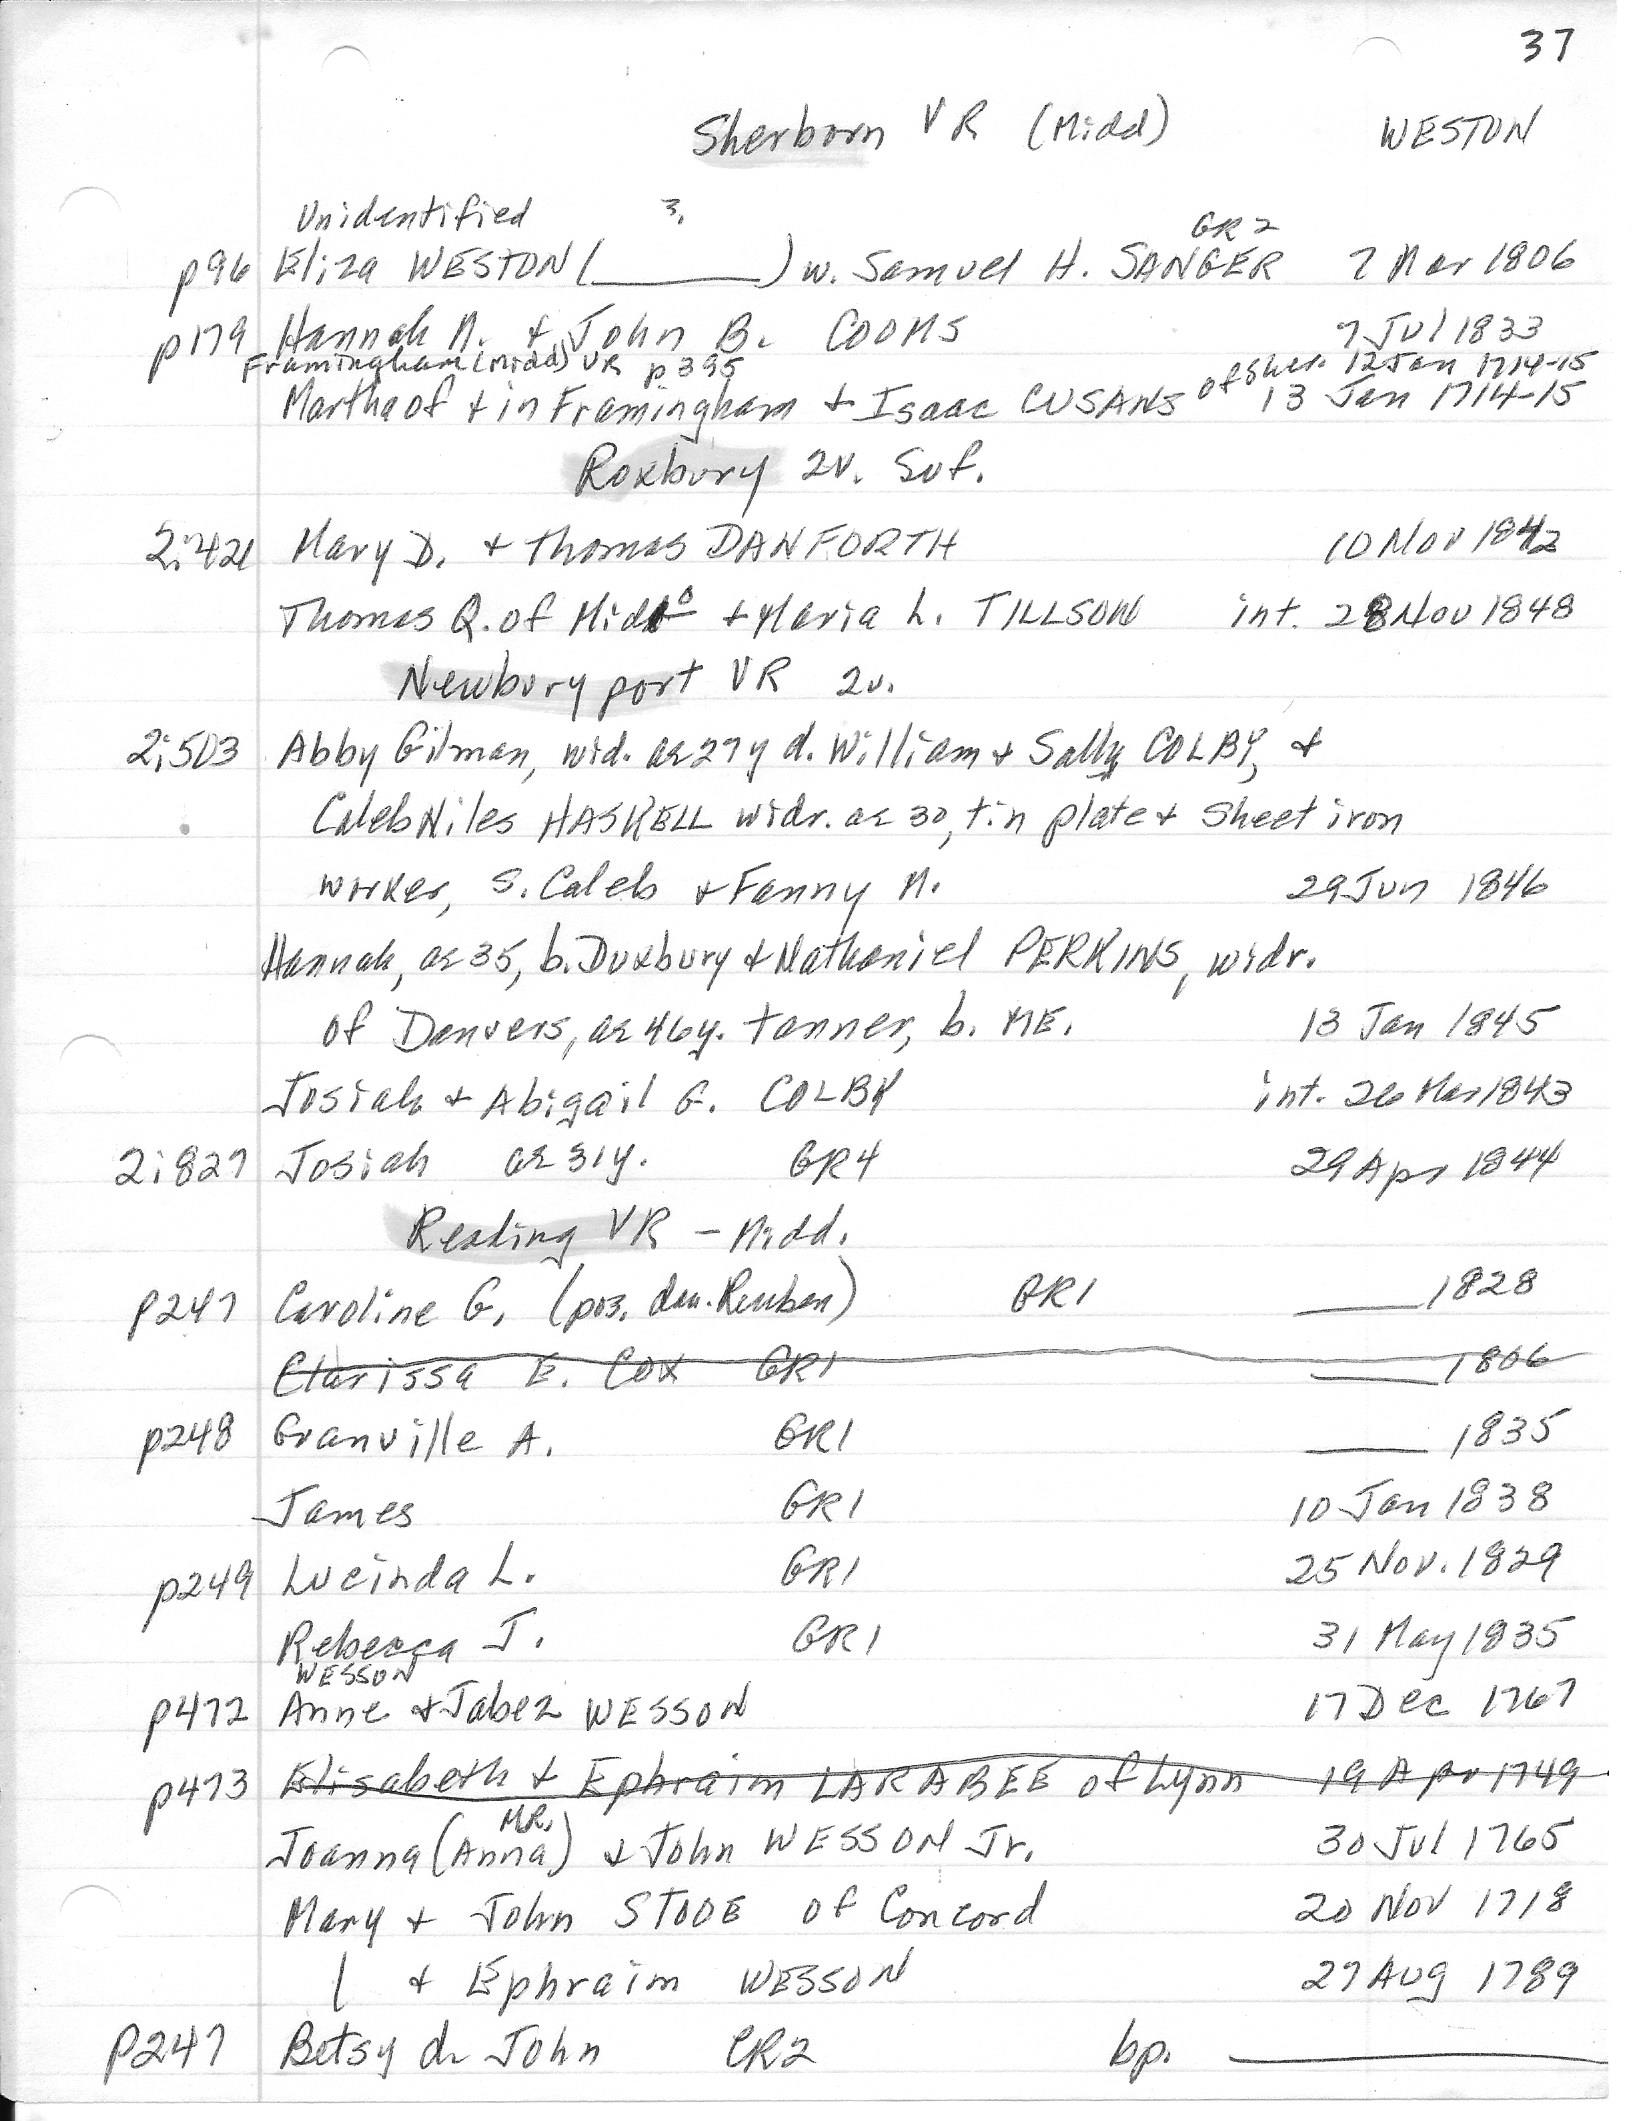 37
Sherborn VR (Midd) WESTON
Unidentified 3.
GR2
p96 Eliza WESTON (______) w. Samuel H. SANGER 7 Mar 1806
p179 Hannah M. & John B. COOMS 7 Jul 1833
Framingham (Midd) VR p395 of Sher. 12 Jan 1714-15
Martha of & in Framingham & Isaac CUSANS 13 Jan 1714-15
Roxbury 2v. Suf.
2:421 Mary D. & Thomas DANFORTH 10 Nov 1842
Thomas Q. of Midd & Maria L. TILLSON int. 28 Nov 1848
Newburyport VR 2v.
2:503 Abby Gilman, wid. ae 27y d. William & Sally COLBY, &
Caleb Niles HASKELL widr. ae 30, tin plate & Sheet iron
worker, s. Caleb & Fanny M. 29 Jun 1846
Hannah, ae 35, b. Duxbury & Nathaniel PERKINS, widr.
of Danvers, ae 46y. tanner, b. ME. 13 Jan 1845
Josiah & Abigail G. COLBY int. 26 Mar 1843
2:827 Josiah ae 31y. GR4 29 Apr 1844
Reading VR - Midd.
p247 Caroline G. (pos. dau. Reuben) GR1 ____1828
Clarissa E. Cox GR1 ____1806
p248 Granville A. GR1 ____ 1835
James GR1 10 Jan 1838
p249 Lucinda L. GR1 25 Nov. 1829
Rebecca J. GR1 31 May 1835
WESSON
p472 Anne & Jabez WESSON 17 Dec 1767
p473 Elisabeth & Ephraim LARABEE of Lynn 19 Apr 1749
MR.
Joanna (Anna) & John WESSON Jr. 30 Jul 1765
Mary & John STODE of Concord 20 Nov 1718
| & Ephraim WESSON 27 Aug 1789
P247 Betsy d. John CR2 bp. ________